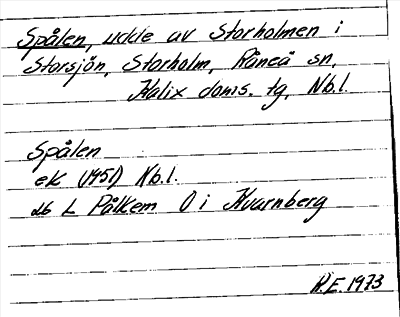 Spålen, udde av Storholmen i
Storsjön, Storholm, Råneå sn,
Kalix doms. tg, Nb.l.
Spålen
ek (1951) Nb.l.
db L Pålkem O i Kvarnberg
R.E. 1973